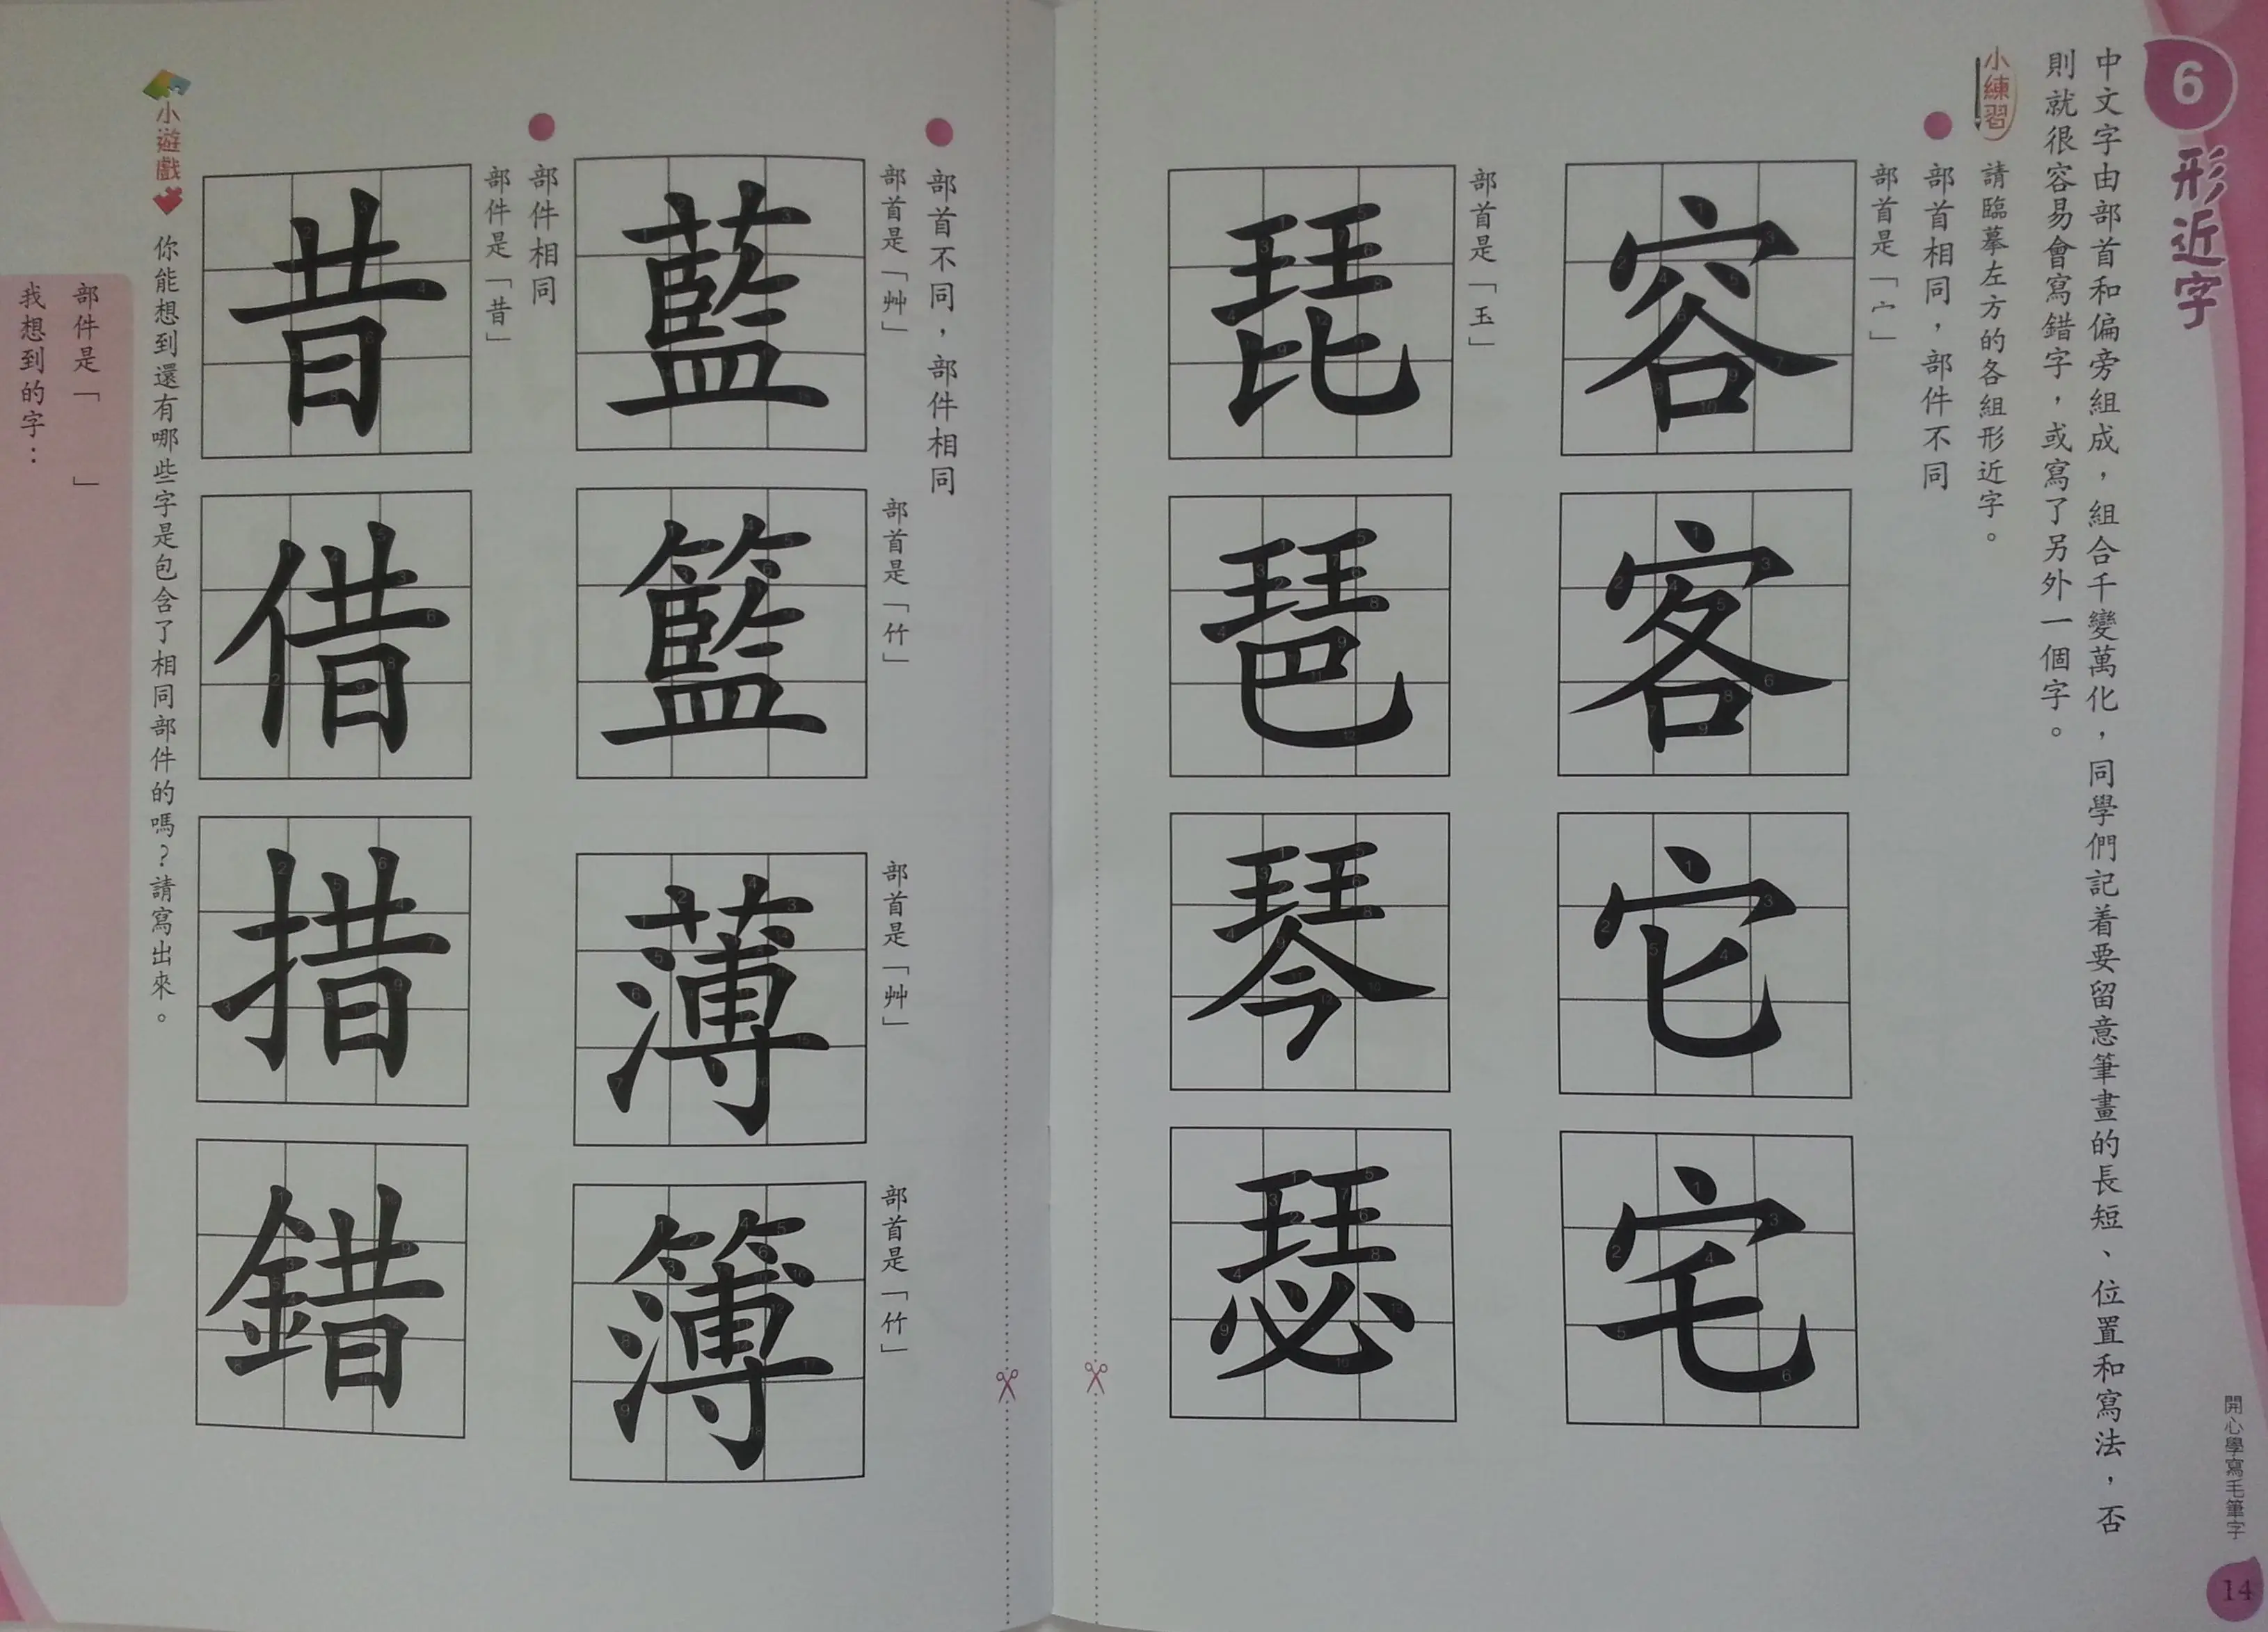 6
形近字
中文字由部首和偏旁組成，組合千變萬化，同學們記着要留意筆畫的長短、位置和寫法，否
則就很容易會寫錯字，或寫了另外一個字。
小練習
請臨摹左方的各組形近字。
部首相同，部件不同
部首是「宀」
容
客
它
宅
部首是「玉」
琵
琶
琴
瑟
開心學寫毛筆字
14
部首不同，部件相同
部首是「艸」
部首是「竹」
部首是「艸」
部首是「竹」
藍
籃
薄
簿
部件相同
部件是「昔」
昔
借
措
錯
小遊戲
你能想到還有哪些字是包含了相同部件的嗎？請寫出來。
部件是「　　」
我想到的字：